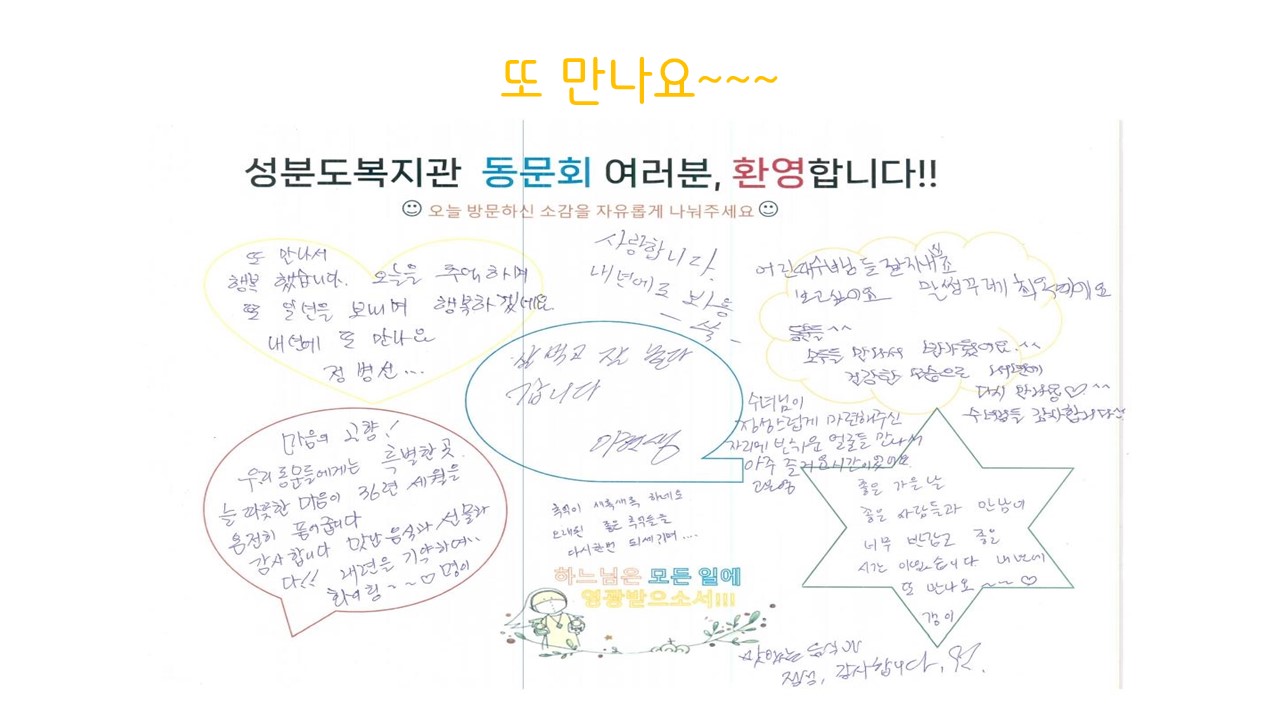 또 만나요~~~
성분도복지관 동문회 여러분, 환영합니다!!
☺ 오늘 방문하신 소감을 자유롭게 나눠주세요 ☺
또 만나서
행복 했습니다. 오늘을 추억하며
또 일년을 보내며 행복하겠네요.
내년에 또 만나요
정병선...
사랑합니다.
내년에도 봐용
보고싶어요
동문들^^
건강한 모습으로
다시 만나용♡^^
수녀님들 감사합니다
잘 먹고 잘 놀다
갑니다
수녀님이
정성스럽게 마련해주신
자리에 반가운 얼굴들 만나서
아주 즐거운시간이었어요
마음의 고향!
우리 동문들에게는 특별한 곳.
늘 따뜻한 마음이 36년 세월을
온전히 품어줍니다
감사합니다 맛난 음식과 선물과
다!! 내년을 기약하며..
화이팅~~♡ 명이
추억이 새록새록 하네요
오래된 좋은 추억들을
다시한번 되새기며....
좋은 가을날
좋은 사람들과 만남이
너무 반갑고 좋은
시간 이었습니다 내년에
또 만나요~~♡
하느님은 모든 일에
영광받으소서!!!
맛있는 음식과
정성, 감사합니다.